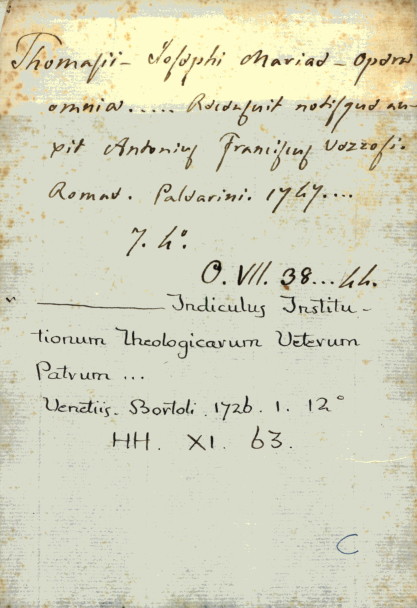 Thomasii - Josephi Mariae - Opera
omnia ..... Recensuit notisque au-
xit Antonius Franciscus Vezzosi.
Romae. Palearini. 1747....
7. 4º.
O. VII. 38...44.
" ———— Indiculus Institu-
tionum Theologicarum Veterum
Patrum ...
Venetiis. Bortoli. 1726. 1. 12º
HH. XI. 63.
C